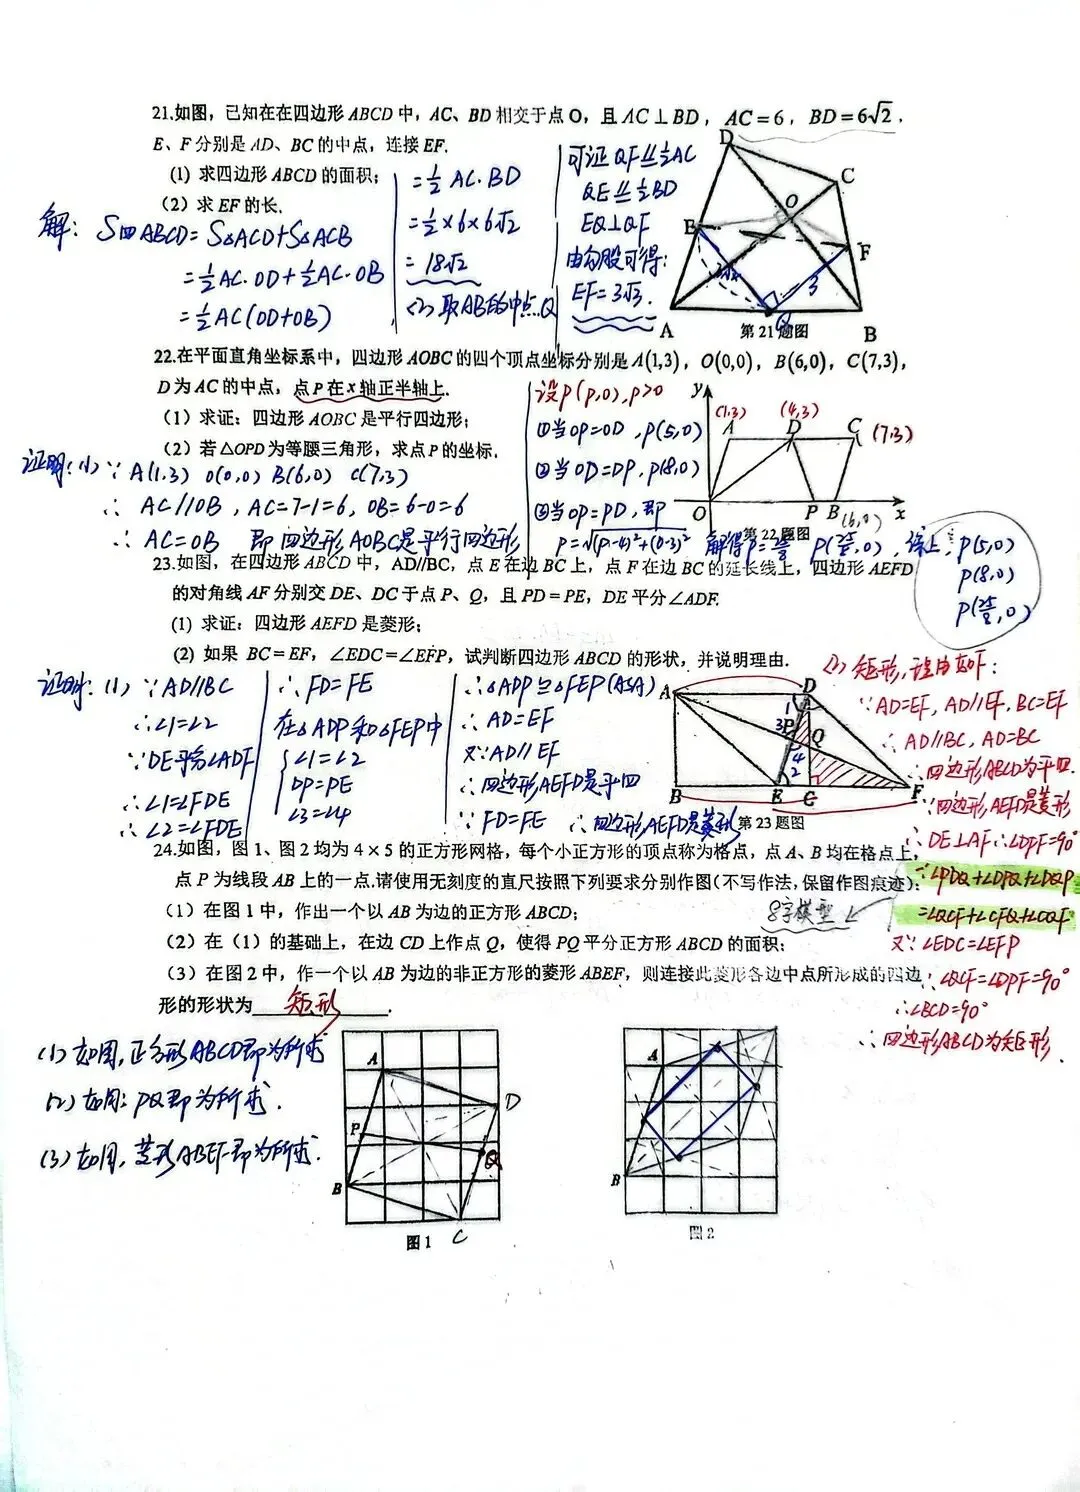 21.如图，已知在在四边形 ABCD 中，AC、BD 相交于点 O，且 AC⊥BD，AC=6，BD=6√2，
E、F 分别是 AD、BC 的中点，连接 EF.
(1) 求四边形 ABCD 的面积；
(2) 求 EF 的长.
解：S四ABCD=S△ACD+S△ACB
=½AC·OD+½AC·OB
=½AC(OD+OB)
=½AC·BD
=½×6×6√2
=18√2
(2)取AB的中点Q
可证QF∥=½AC
QE∥=½BD
EQ⊥QF
由勾股可得：
EF=3√3.
D
C
O
E
F
3√2
3
A
Q
B
第21题图
22.在平面直角坐标系中，四边形 AOBC 的四个顶点坐标分别是 A(1,3)，O(0,0)，B(6,0)，C(7,3)，
D 为 AC 的中点，点 P 在 x 轴正半轴上.
(1) 求证：四边形 AOBC 是平行四边形；
(2) 若△OPD 为等腰三角形，求点 P 的坐标.
证明：(1)∵A(1,3) O(0,0) B(6,0) C(7,3)
∴AC∥OB，AC=7-1=6，OB=6-0=6
∴AC=OB 即四边形AOBC是平行四边形
设P(p,0),p>0
①当OP=OD，P(5,0)
②当OD=DP，P(8,0)
③当OP=PD，即
P=√(P-4)²+(0-3)² 解得P=25/8 P(25/8,0)，综上：P(5,0)
P(8,0)
P(25/8,0)
y
(1,3) (4,3)
A D C (7,3)
O P B x
(6,0)
第22题图
23.如图，在四边形 ABCD 中，AD//BC，点 E 在边 BC 上，点 F 在边 BC 的延长线上，四边形 AEFD
的对角线 AF 分别交 DE、DC 于点 P、Q，且 PD=PE，DE 平分∠ADF.
(1) 求证：四边形 AEFD 是菱形；
(2) 如果 BC=EF，∠EDC=∠EFP，试判断四边形 ABCD 的形状，并说明理由.
证明：(1)∵AD∥BC
∴∠1=∠2
∵DE平分∠ADF
∴∠1=∠FDE
∴∠2=∠FDE
∴FD=FE
在△ADP和△FEP中
∠1=∠2
DP=PE
∠3=∠4
∴△ADP≌△FEP(ASA)
∴AD=EF
又∵AD∥EF
∴四边形AEFD是平四
∵FD=FE ∴四边形AEFD是菱形
A D
1
3 P Q
4
2
B E C F
第23题图
(2)矩形,理由如下：
∵AD=EF, AD∥EF, BC=EF
∴AD∥BC, AD=BC
∴四边形ABCD为平四.
∵四边形AEFD是菱形
∴DE⊥AF ∴∠DPF=90°
∵∠PDQ+∠DPQ+∠DQP
=∠QCF+∠CFQ+∠CQF
又∵∠EDC=∠EFP
∴∠QCF=∠DPF=90°
∴∠BCD=90°
∴四边形ABCD为矩形.
8字模型
24.如图，图1、图2均为 4×5 的正方形网格，每个小正方形的顶点称为格点，点 A、B 均在格点上，
点 P 为线段 AB 上的一点.请使用无刻度的直尺按照下列要求分别作图(不写作法,保留作图痕迹)：
(1) 在图1中，作出一个以 AB 为边的正方形 ABCD；
(2) 在（1）的基础上，在边 CD 上作点 Q，使得 PQ 平分正方形 ABCD 的面积；
(3) 在图2中，作一个以 AB 为边的非正方形的菱形 ABEF，则连接此菱形各边中点所形成的四边
形的形状为 矩形 .
(1)如图,正方形ABCD即为所求
(2)如图：PQ即为所求.
(3)如图，菱形ABEF即为所求.
A
D
P
Q
B
C
图1
A
B
图2